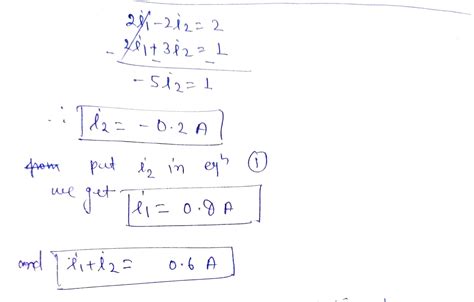 2i₁ - 2i₂ = 2
- 2i₁ + 3i₂ = 1
- -
- 5i₂ = 1
∴ i₂ = - 0.2 A
from put i₂ in eqⁿ ①
we get i₁ = 0.8 A
and i₁ + i₂ = 0.6 A